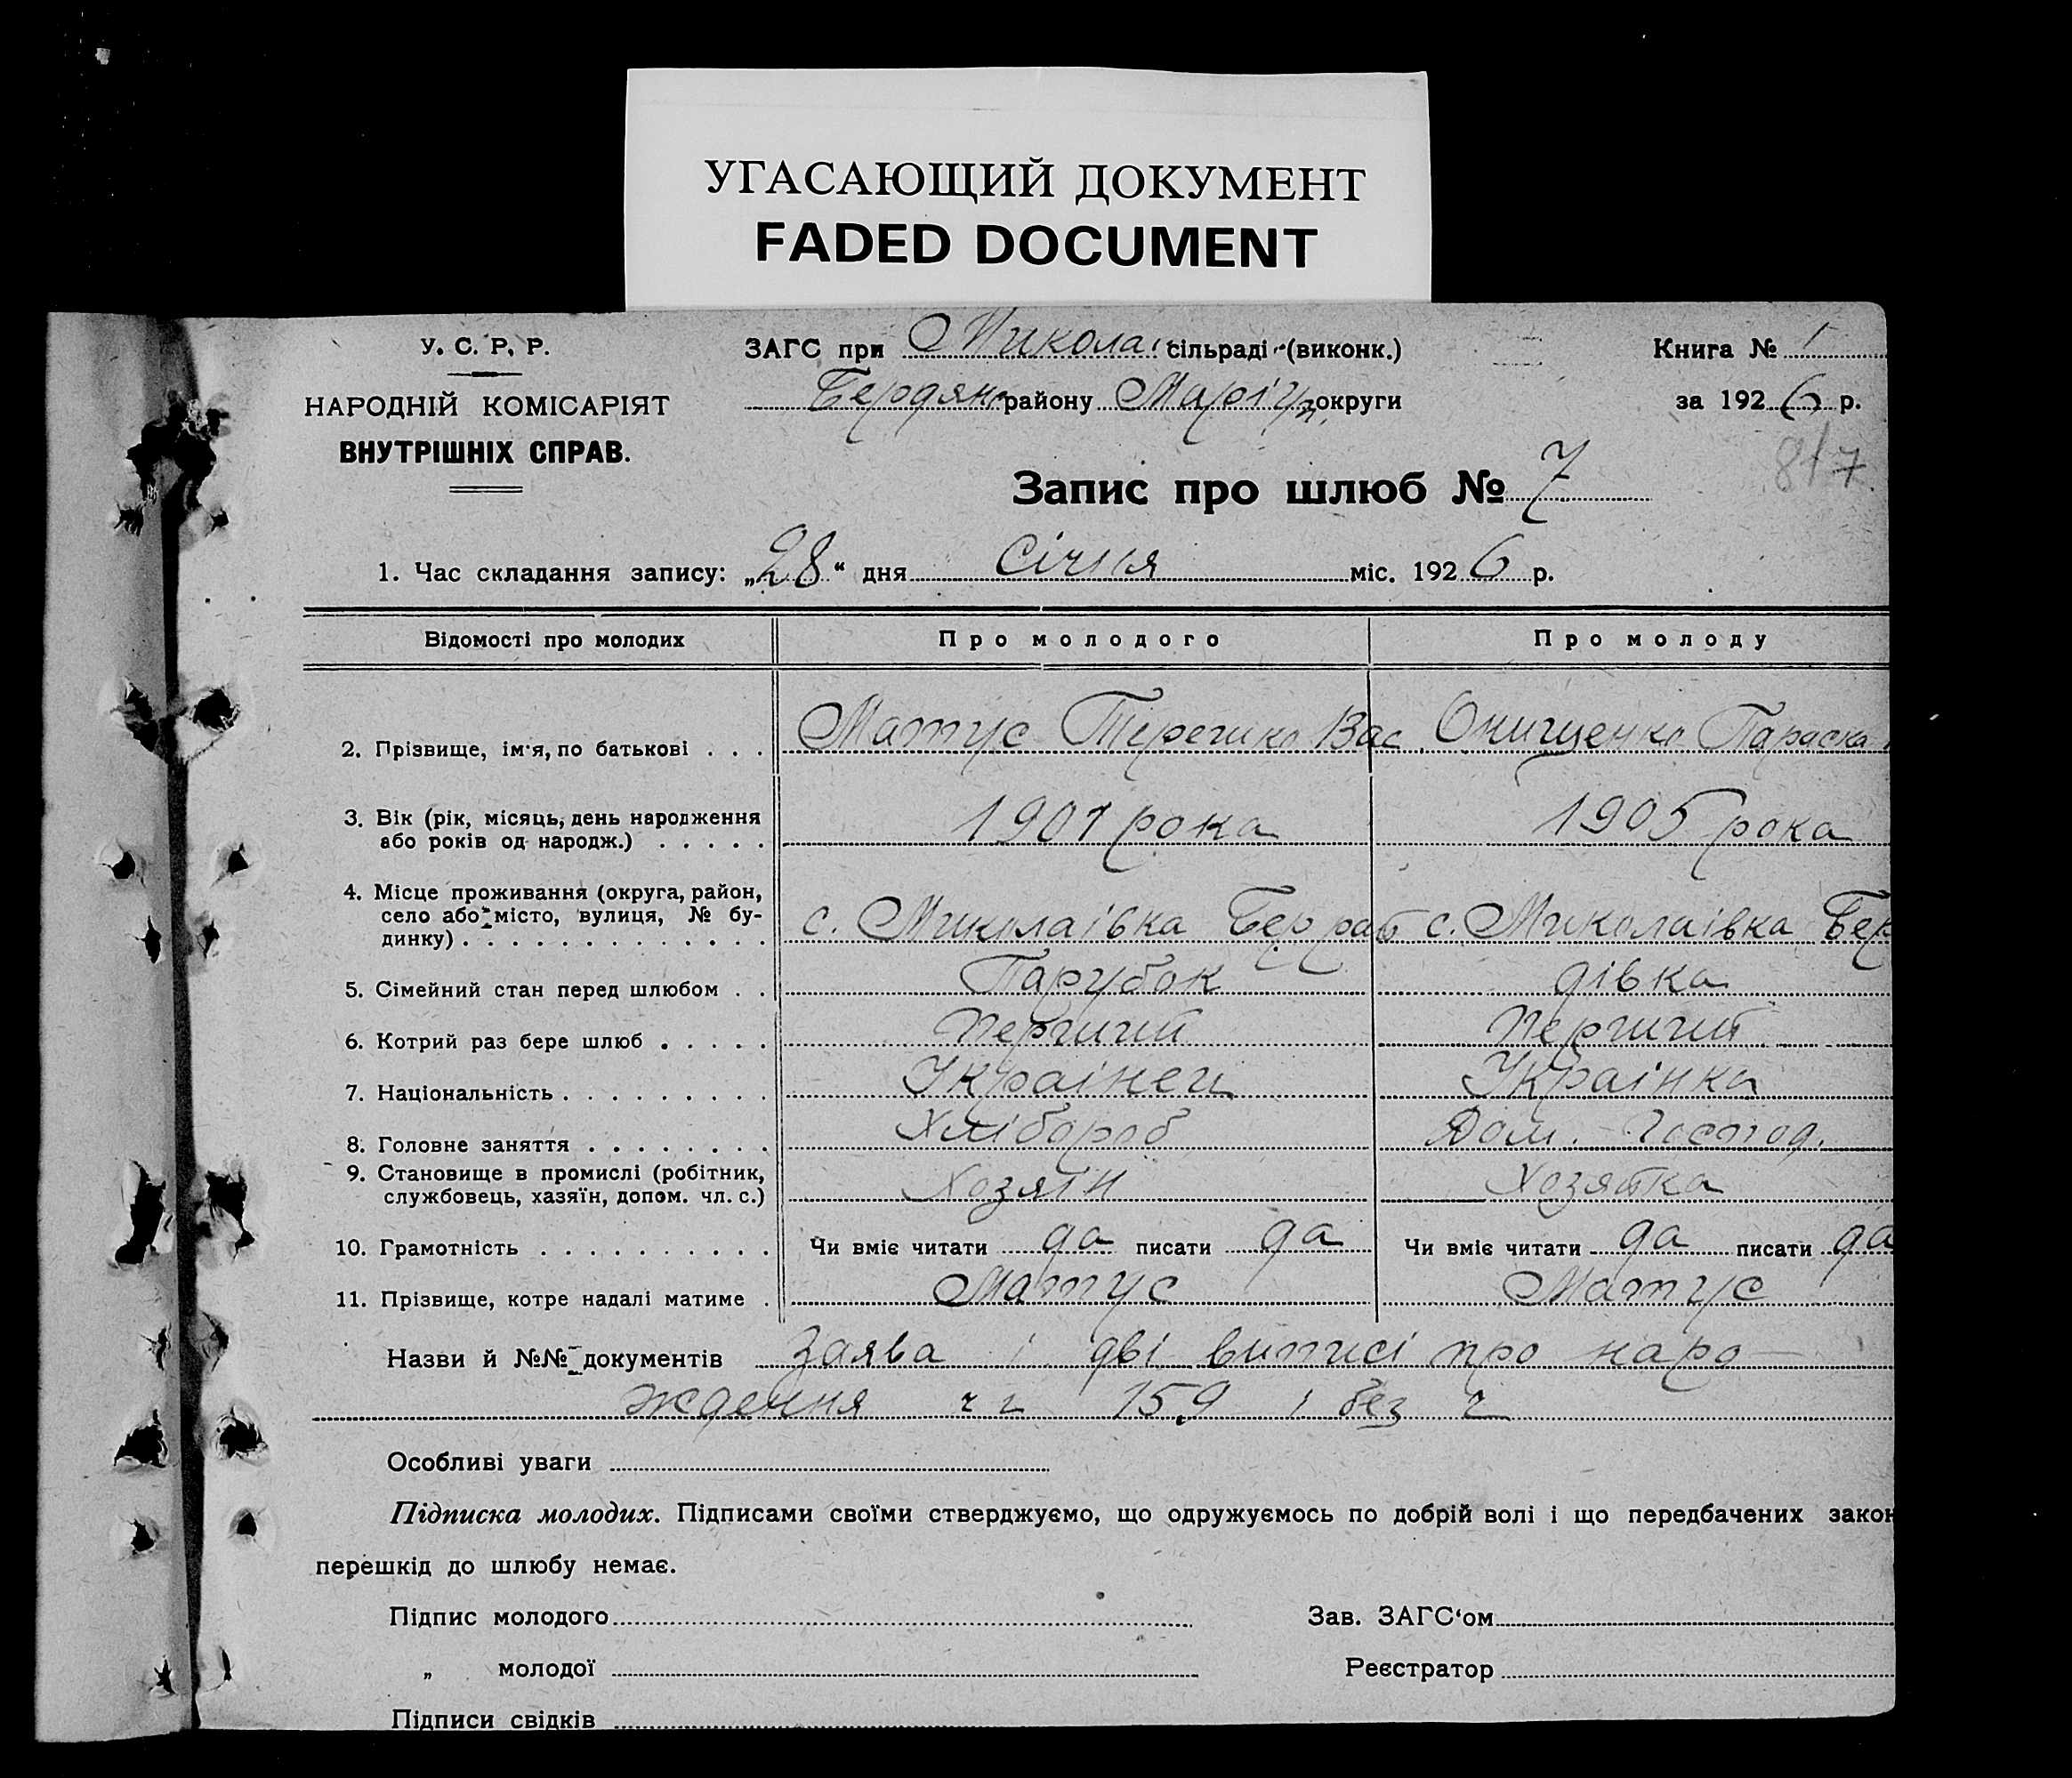 УГАСАЮЩИЙ ДОКУМЕНТ
FADED DOCUMENT
У. С. Р. Р.
НАРОДНІЙ КОМІСАРІЯТ
ВНУТРІШНІХ СПРАВ.
ЗАГС при Микола. сільраді (виконк.)
Бердянс району Маріуп. округи
Книга № 1
за 1926 р.
817
Запис про шлюб № 7
1. Час складання запису: „28“ дня Січня міс. 1926 р.
Відомості про молодих Про молодого Про молоду
2. Прізвище, ім'я, по батькові . . . Матус Терешко Вас. Онищенко Параска
3. Вік (рік, місяць, день народження 1901 рока 1905 рока
або років од народж.) . . . . .
4. Місце проживання (округа, район,
село або місто, вулиця, № бу- с. Миколаівка Бер с. Миколаівка Бер
динку) . . . . . . . . . . . . .
5. Сімейний стан перед шлюбом . . Парубок дівка
6. Котрий раз бере шлюб . . . . . Перший Перший
7. Національність . . . . . . . . . Украінец Украінка
8. Головне заняття . . . . . . . . Хлібороб Дом. Господ.
9. Становище в промислі (робітник, Хозяін Хозяйка
службовець, хазяїн, допом. чл. с.)
10. Грамотність . . . . . . . . . . Чи вміє читати да писати да Чи вміє читати да писати да
11. Прізвище, котре надалі матиме . Матус Матус
Назви й №№ документів Заява і дві виписі про наро-
ждення 159 і без ч
Особливі уваги
Підписка молодих. Підписами своїми стверджуємо, що одружуємось по добрій волі і що передбачених закон
перешкід до шлюбу немає.
Підпис молодого Зав. ЗАГС‘ом
„ молодої Реєстратор
Підписи свідків